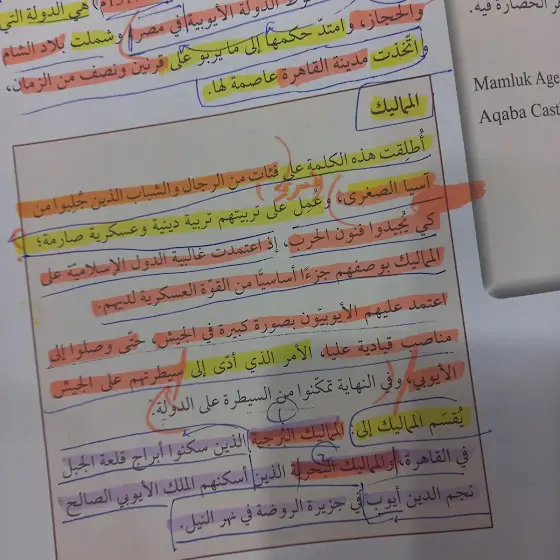 سقوط الدولة الأيوبية في مصر
هي الدولة التي
والحجاز، وامتدّ حكمها إلى ما يربو على قرنين ونصف من الزمان،
وشملت بلاد الشام
واتّخذت مدينة القاهرة عاصمة لها.
المماليك
أُطلِقت هذه الكلمة على فئات من الرجال والشباب الذين جُلِبوا من
آسيا الصغرى، وعُمِل على تربيتهم تربية دينية وعسكرية صارمة؛
كي يُجيدوا فنون الحرب، إذ اعتمدت غالبية الدول الإسلاميّة على
المماليك بوصفهم جزءًا أساسيًّا من القوّة العسكرية لديهم.
اعتمد عليهم الأيوبيّون بصورة كبيرة في الجيش، حتّى وصلوا إلى
مناصب قيادية عليا، الأمر الذي أدّى إلى سيطرتهم على الجيش
الأيوبي، وفي النهاية تمكّنوا من السيطرة على الدولة.
يُقسَم المماليك إلى: المماليك البُرجية الذين سكنوا أبراج قلعة الجبل
في القاهرة، والمماليك البحرية الذين أسكنهم الملك الأيوبي الصالح
نجم الدين أيوب في جزيرة الروضة في نهر النيل.
الحضارة فيه.
Mamluk Age
Aqaba Cast